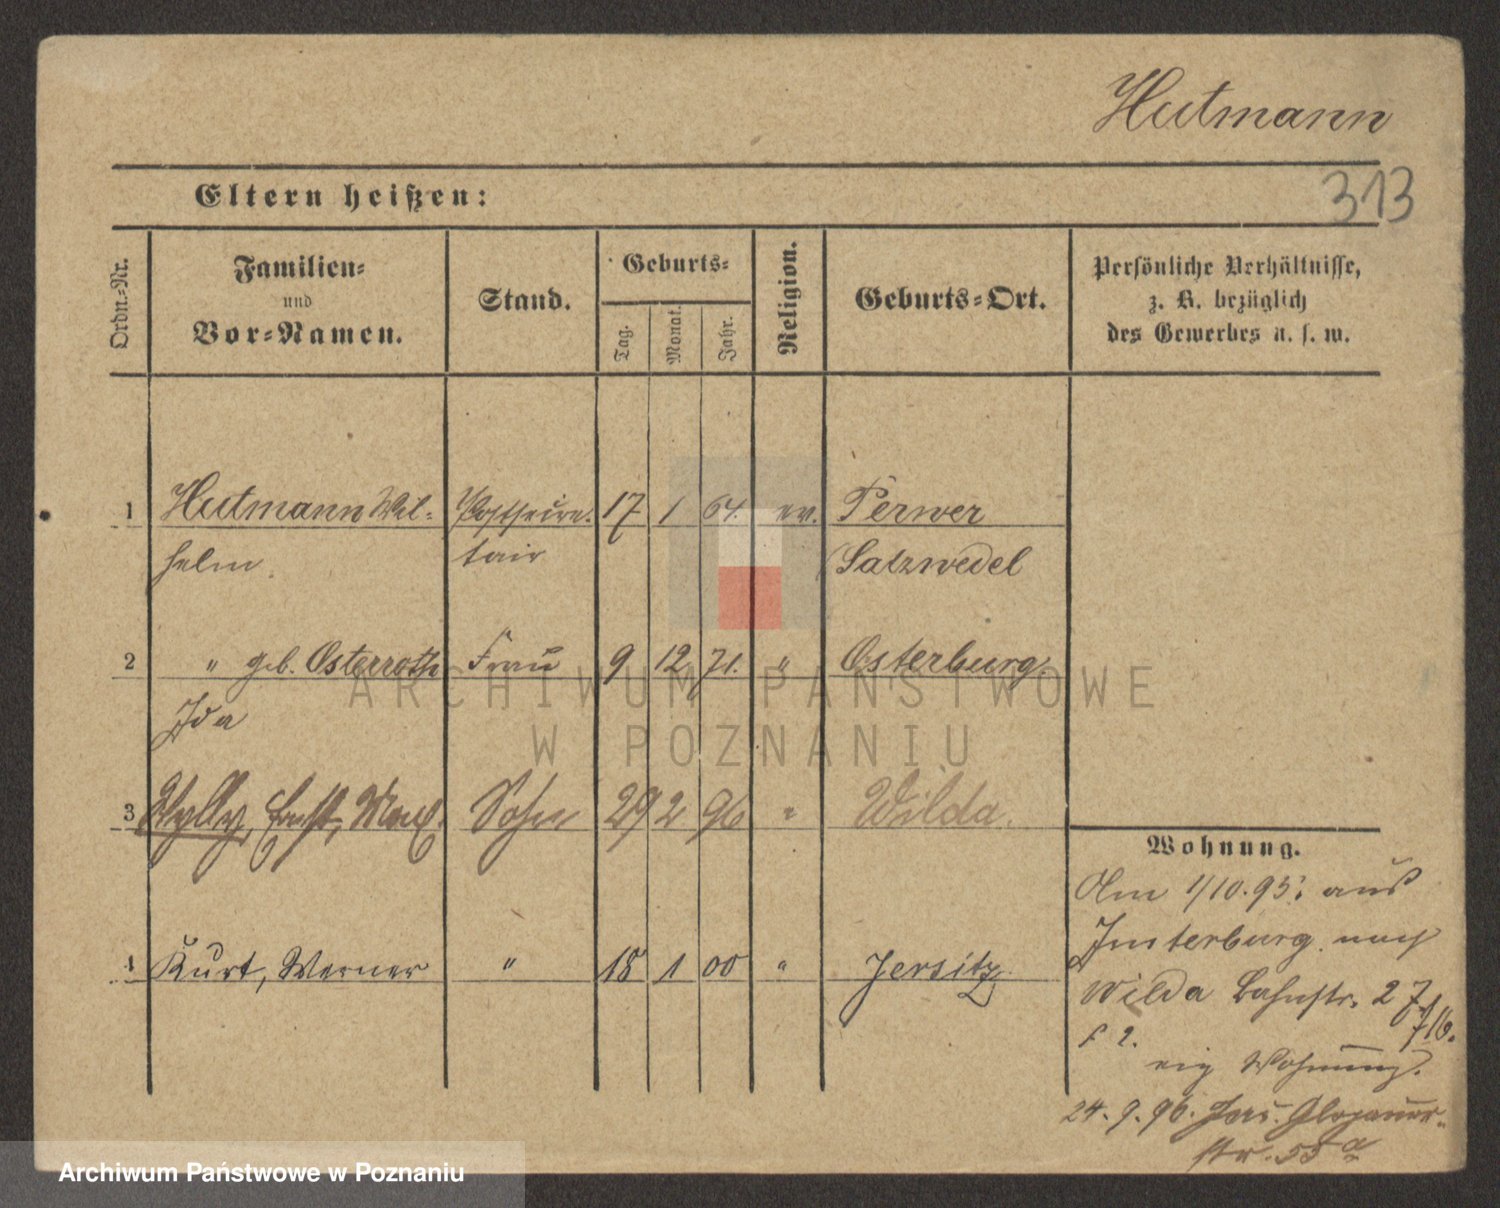 Hutmann
313
Eltern heißen:
Ordn.-Nr.
Familien-
und
Vor-Namen.
Stand.
Geburts-
Tag.
Monat.
Jahr.
Religion.
Geburts-Ort.
Persönliche Verhältnisse,
z. B. bezüglich
des Gewerbes u. s. w.
1 Hutmann Wil- 17 1 64. ev. Perwer
helm. tair Salzwedel
2 " geb. Osterroth Frau 9 12 71. " Osterburg.
Ida
3 Willy, Ernst, Max. Sohn 29 2 96 " Wilda.
4 Kurt, Werner " 18 1 00 " Jersitz
Wohnung.
Am 1/10.95. aus
nach
Wilda Bahnstr. 27
7/10.
f 2.
eig Wohnung.
24.9.96. Jers. Glogauer-
str. 55a
ARCHIWUM PAŃSTWOWE
W POZNANIU
Archiwum Państwowe w Poznaniu